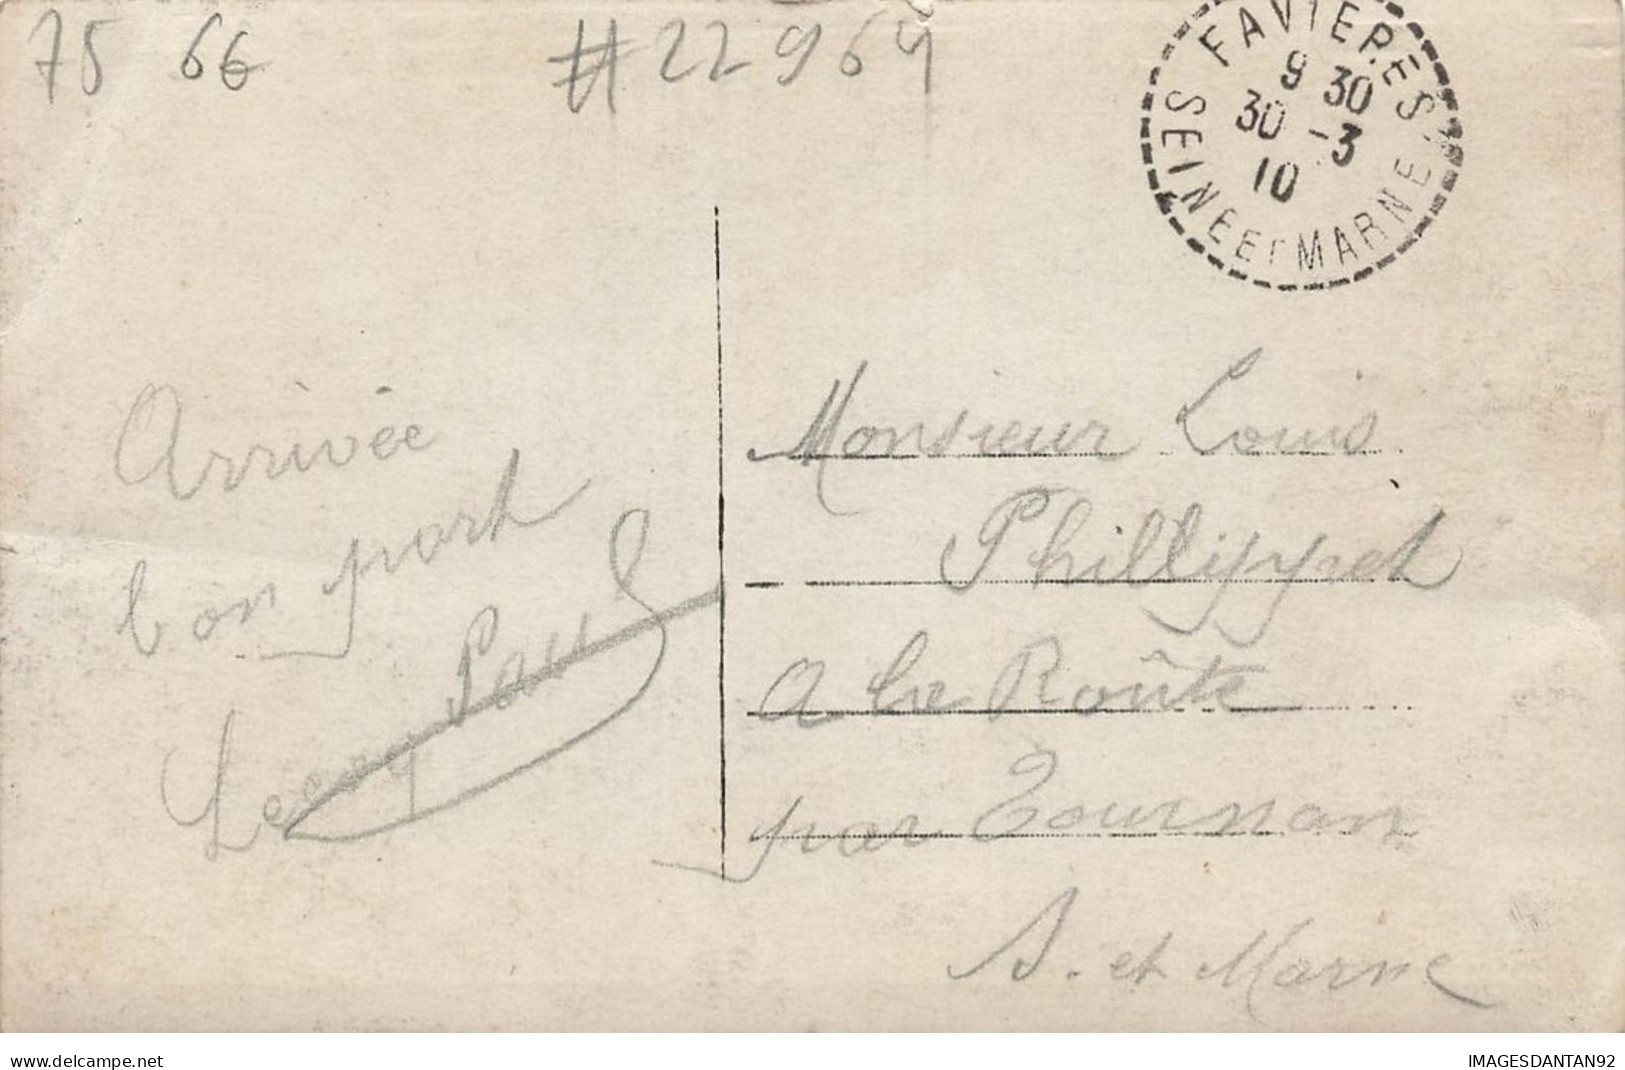 75 6€ #22969
FAVIERES
9 30
30 -3
10
SEINE ET MARNE
Arrivée
bon port
Leroy Paul
Monsieur Louis
Phillippet
a la Roûte
par Tournan
S. et Marne
www.delcampe.net
IMAGESDANTAN92